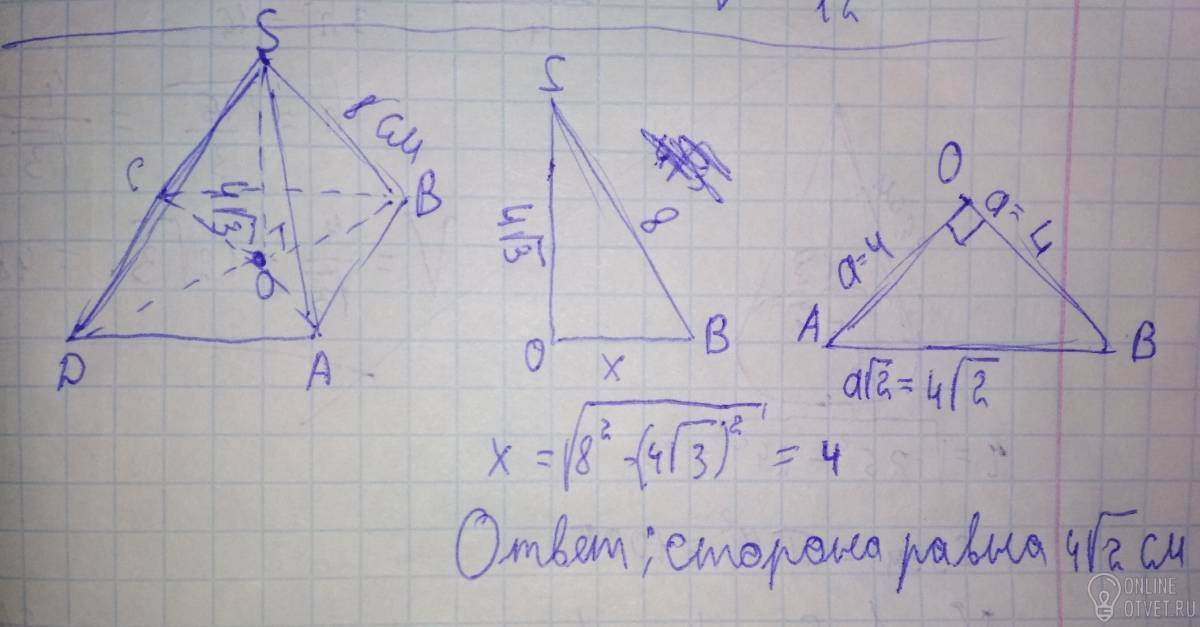 12
S
8 см
C
4√3
B
O
D
A
S
4√3
8
O
x
B
O
a=4
a=4
A
B
a√2=4√2
x = √8² - (4√3)² = 4
Ответ; сторона равна 4√2 см
ONLINE
OTVET.RU